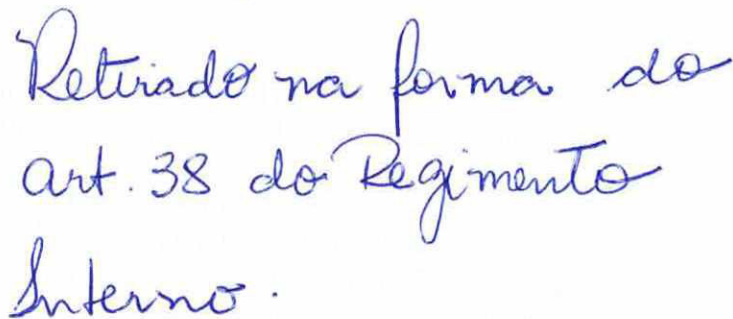 Retirado na forma do
art. 38 do Regimento
Interno.